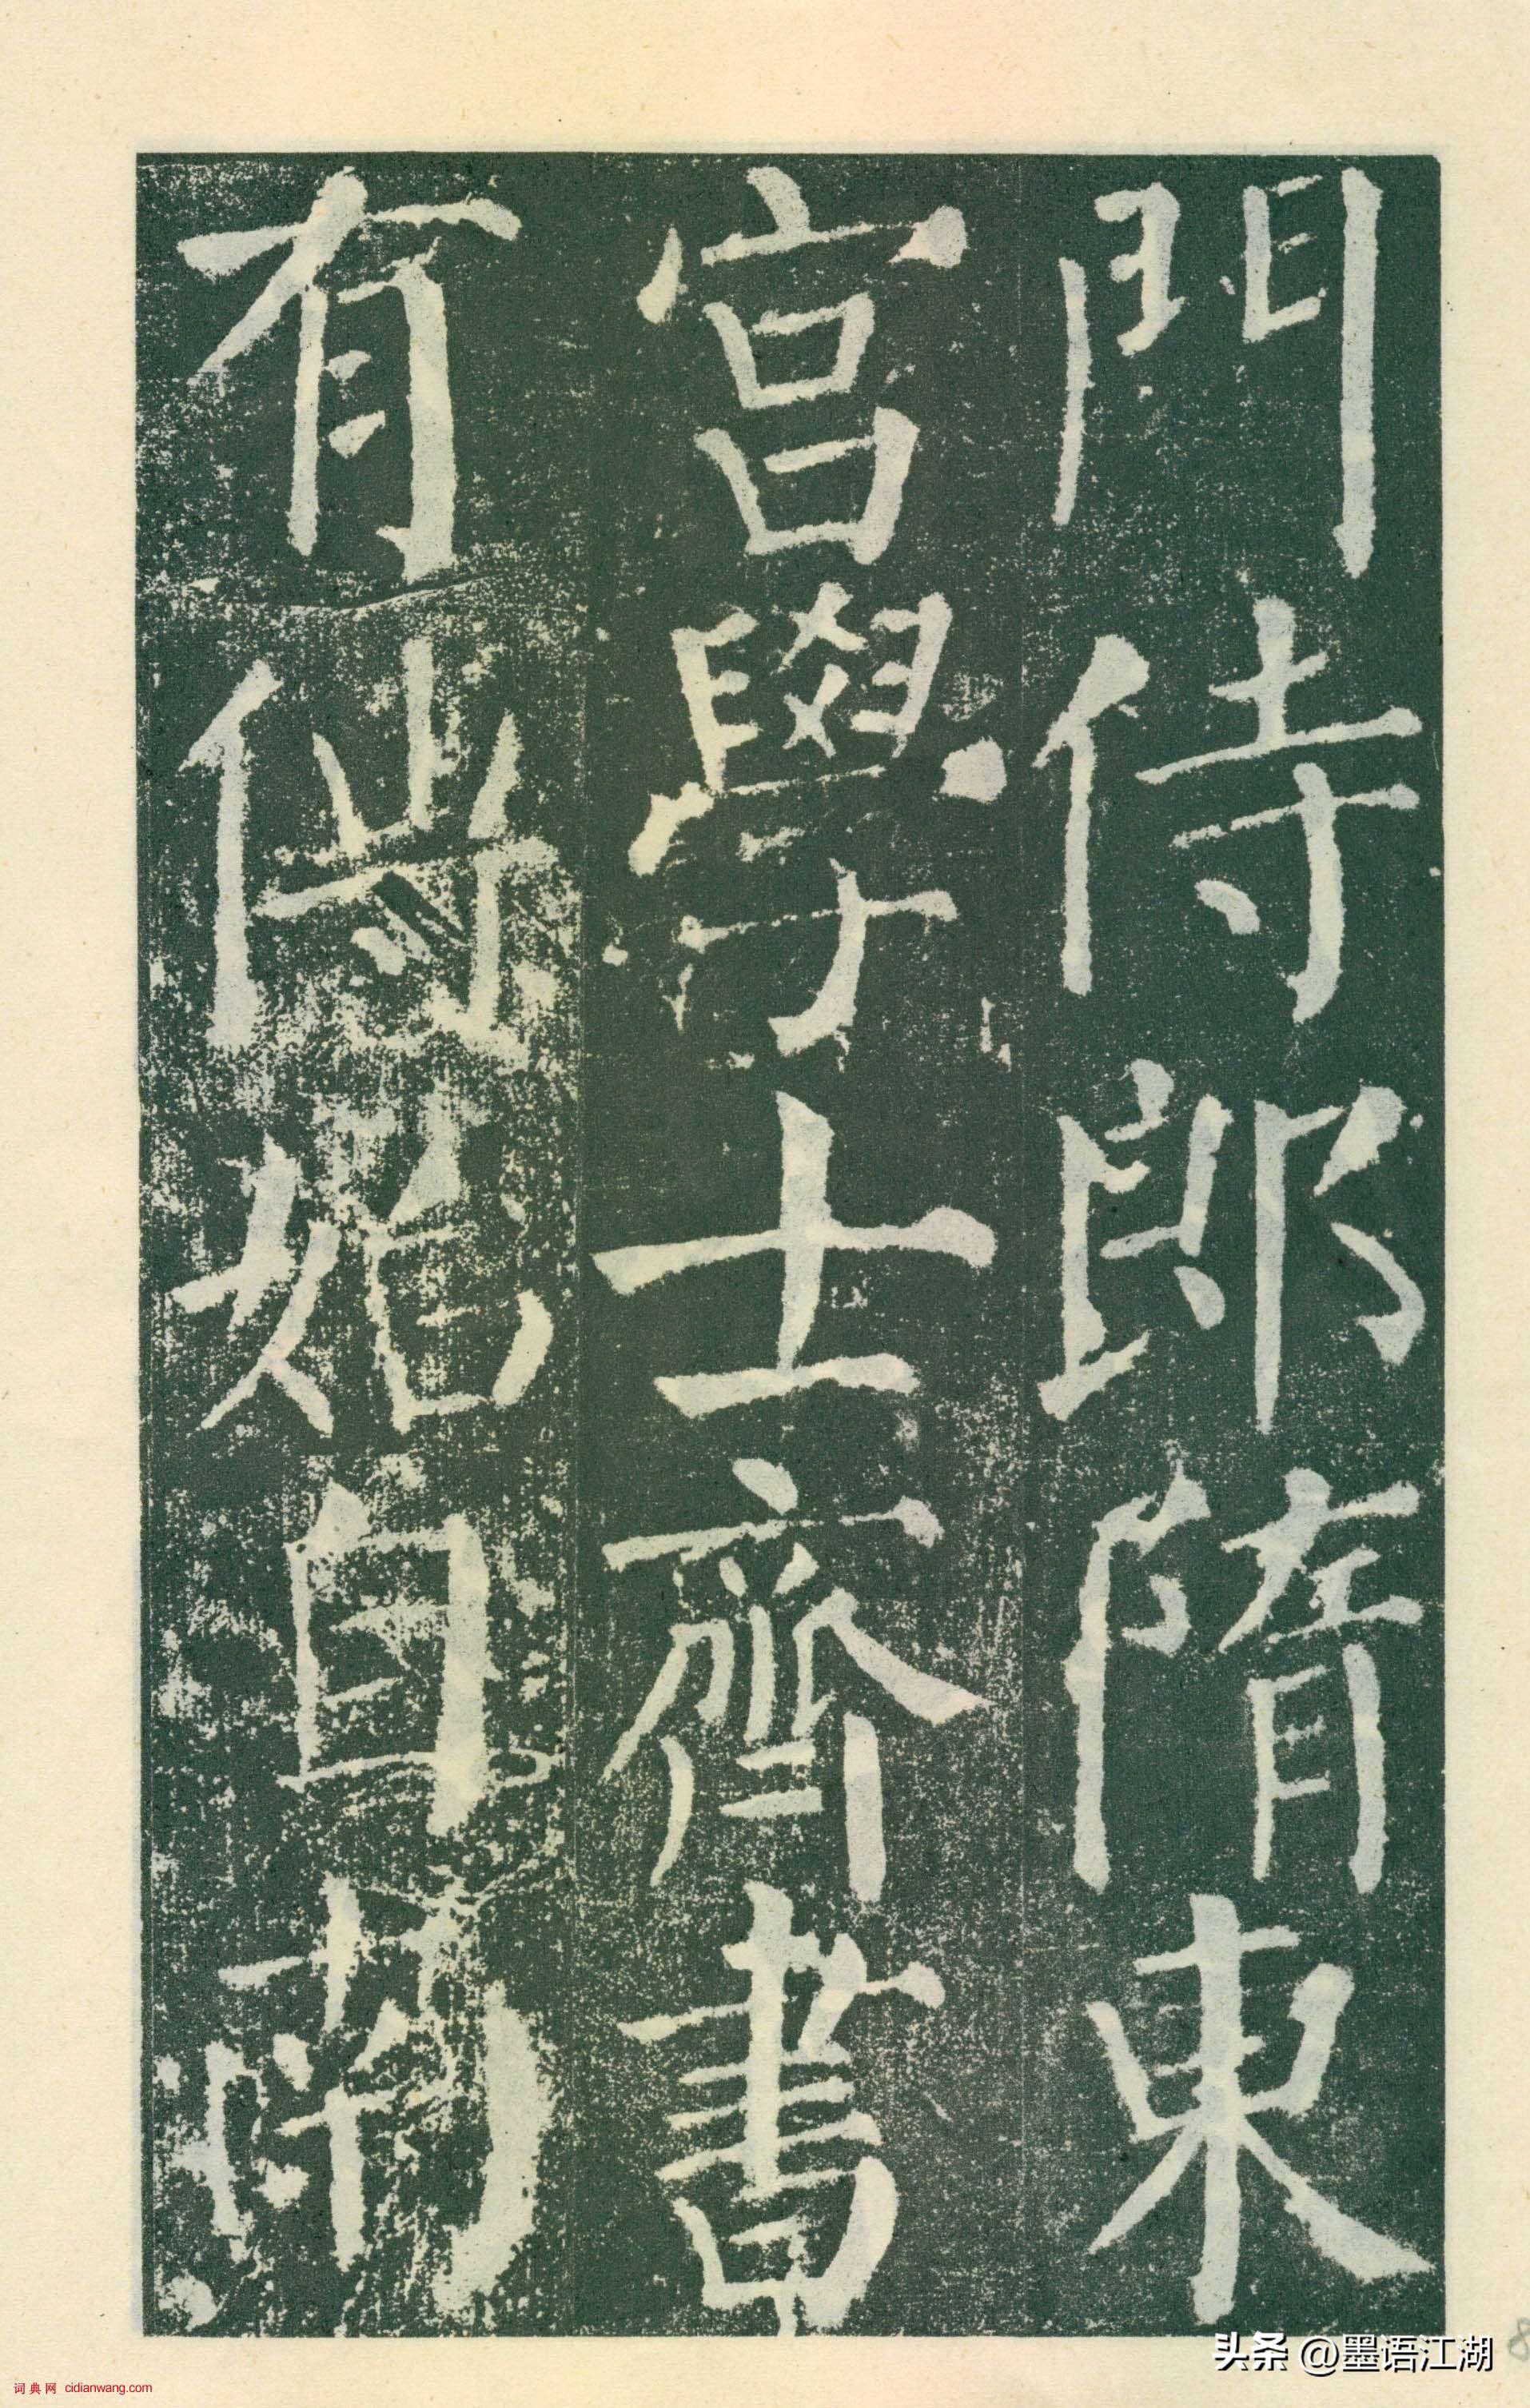 門侍郎隋東
宮學士齊書
有傳始自南
头条 @墨语江湖
词典网 cidianwang.com